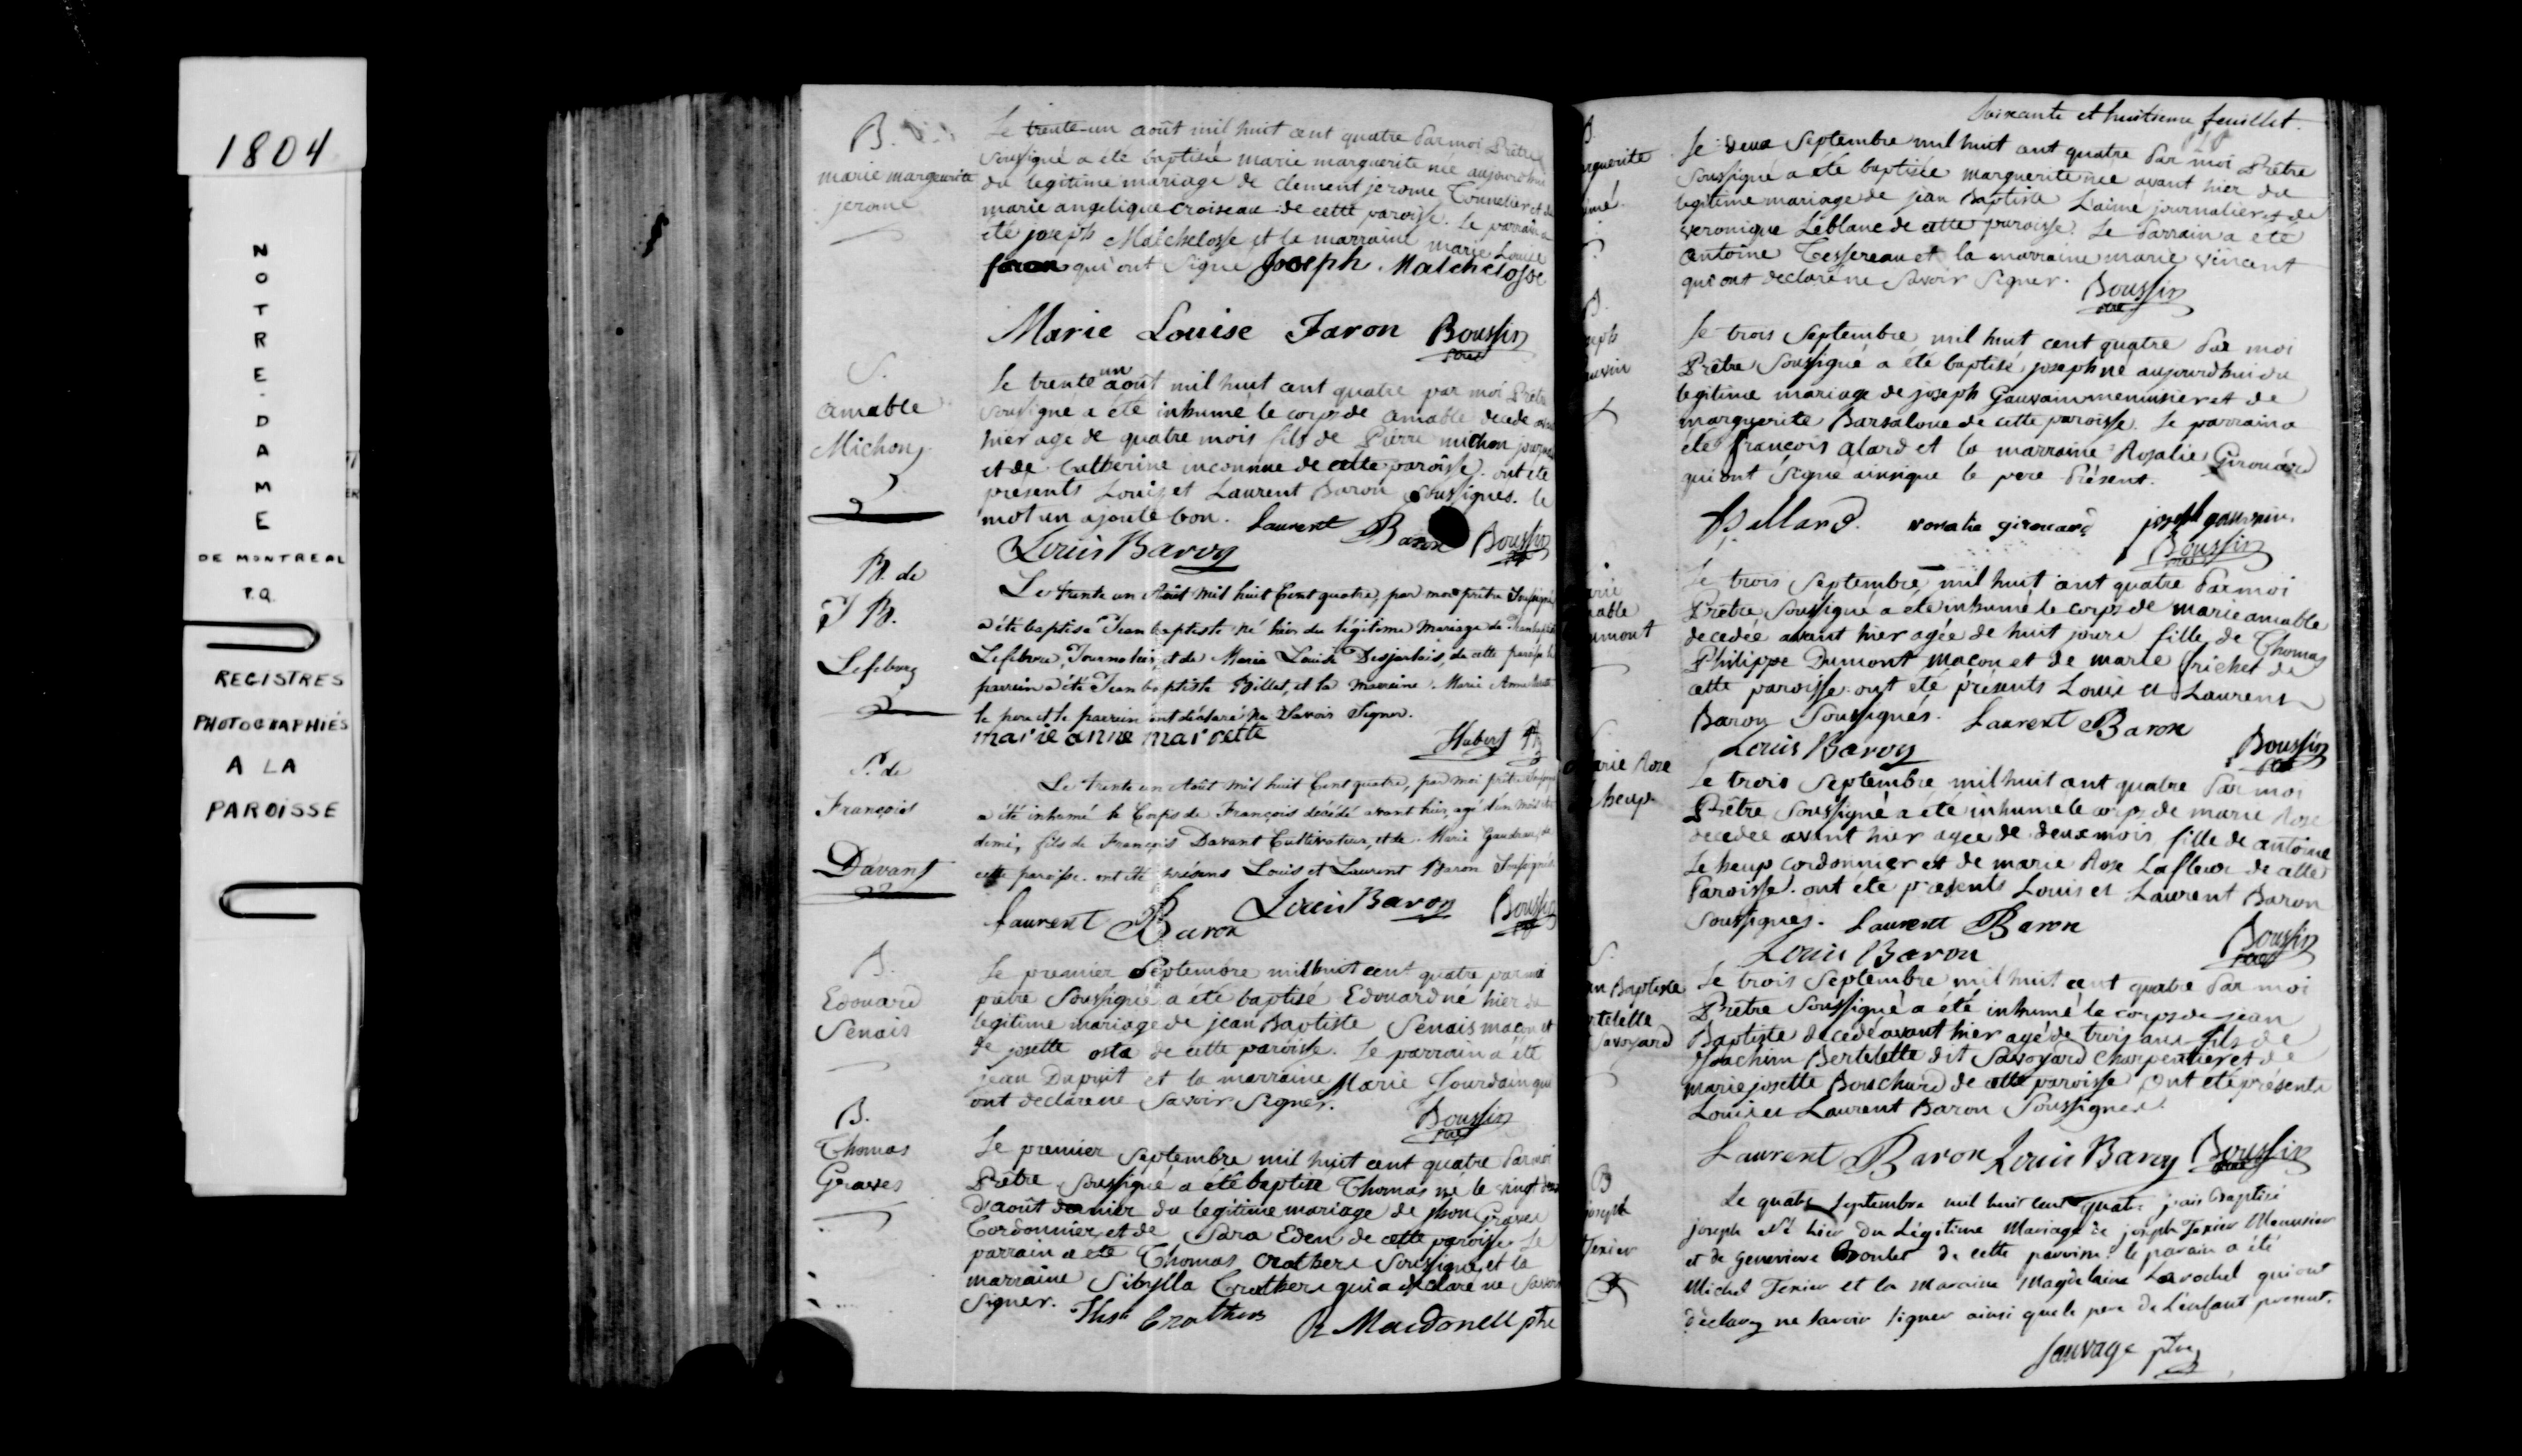 1804
NOTRE-DAME
DE MONTREAL
P.Q.
REGISTRES
PHOTOGRAPHIÉS
A LA
PAROISSE
B.
marie marguerite
jerome
Le trente-un août mil huit cent quatre par moi Prêtre
soussigné a été baptisée marie marguerite née aujourd'hui
du legitime mariage de clement jerome Tonnelier et de
marie angelique croiseau de cette paroisse. Le parrain a
été joseph Malchelosse et la marraine marie Louise
faron qui ont signé Joseph Malchelosse
Marie Louise Faron Boussin ptre
S.
amable
Michon
Le trente un août mil huit cent quatre par moi Prêtre
soussigné a été inhumé le corps de amable decede avant
hier age de quatre mois fils de Pierre michon
et de Catherine inconnue de cette paroisse. ont été
présents Louis et Laurent Baron soussignés. le
mot un ajouté bon. Laurent Baron Boussin
Louis Baron
B. de
J B.
Lefebvre
Le trente un Août mil huit Cent quatre, par moi prêtre Soussigné
a été baptisé Jean baptiste né hier du légitime Mariage de Jean baptiste
Lefebvre, Journalier, et de Marie Louise Desjarlais, de cette paroisse le
parrein a été Jean baptiste Billet, et la Marreine Marie Anne
le pere et le parrein ont déclaré ne Savoir Signer.
marie anne mairette
Hubert Ptre
S. de
François
Davant
Le trente un Août mil huit Cent quatre, par moi prêtre Soussigné
a été inhumé le Corps de François décédé avant hier, agé d'un mois et
demi, fils de François Davant Cultivateur, et de Marie Gaudreau, de
cette paroisse. ont été présens Louis et Laurent Baron Soussignés
Laurent Baron Louis Baron Boussin
B.
Edouard
Senais
Le premier Septembre mil huit cent quatre par moi
prêtre Soussigné a été baptisé Edouard né hier du
legitime mariage de jean Baptiste Senais maçon et
de josette osta de cette paroisse. Le parrain a été
jean Dupuit et la marraine Marie Jourdain qui
ont declaré ne savoir signer.
Boussin ptre
B.
Thomas
Graves
Le premier Septembre mil huit cent quatre Par moi
Prêtre Soussigné a été baptisé Thomas né le vingt deux
d'août dernier du legitime mariage de jhon Graves
Cordonnier et de Sara Eden de cette paroisse. Le
parrain a été Thomas Crathers Soussigné et la
marraine Sibylla Crathers qui a declaré ne savoir
signer.
Thos Crathers R Macdonell ptre
Soixante et huitieme feuillet.
Le deux Septembre mil huit cent quatre Par moi Prêtre
Soussigné a été baptisée marguerite née avant hier du
legitime mariage de jean Baptiste L'aimé journalier et de
veronique Leblanc de cette paroisse. Le Parrain a été
antoine Tessereau et la marraine marie vincent
qui ont declaré ne savoir signer. Boussin ptre
Le trois Septembre mil huit cent quatre Par moi
Prêtre Soussigné a été baptisé joseph né aujourd'hui du
legitime mariage de joseph Gauvain menuisier et de
marguerite Barsaloue de cette paroisse. Le parrain a
été françois alard et la marraine Rosalie Girouard
qui ont Signé ainsi que le pere Présent.
f. allard. rosalie girouard joseph gauvain.
Boussin
Le trois Septembre mil huit cent quatre Par moi
Prêtre Soussigné a été inhumé le corps de marie amable
decedée avant hier agée de huit jours fille de Thomas
Philippe Dumont maçon et de marie frichet de
cette paroisse. ont été présents Louis et Laurent
Baron Soussignés. Laurent Baron
Louis Baron Boussin
rie Rose
heup
Le trois Septembre mil huit cent quatre Par moi
Prêtre Soussigné a été inhumé le corps de marie Rose
decedée avant hier agée de deux mois fille de antoine
Le heup cordonnier et de marie Rose Lafleur de cette
Paroisse. ont été présents Louis et Laurent Baron
soussignés. Laurent Baron
Louis Baron Boussin
an Baptiste
rtelette
Savoyard
Le trois Septembre mil huit cent quatre Par moi
Prêtre Soussigné a été inhumé le corps de jean
Baptiste decedé avant hier agé de trois ans fils de
Joachim Bertelette dit Savoyard charpentier et de
marie josette Bouchard de cette paroisse ont été présents
Louis et Laurent Baron Soussignés.
Laurent Baron Louis Baron Boussin
B
joseph
Texier
Le quatre Septembre mil huit cent quatre j'ais baptisé
joseph Né hier Du Légitime Mariage de joseph Texier Menusier
et de Genevieve Boulet de cette paroisse. le parain a été
Michel Texier et la Maraine Magdelaine Larochel qui ont
déclaré ne savoir signer ainsi que le pere De L'enfant present.
Sauvage ptre